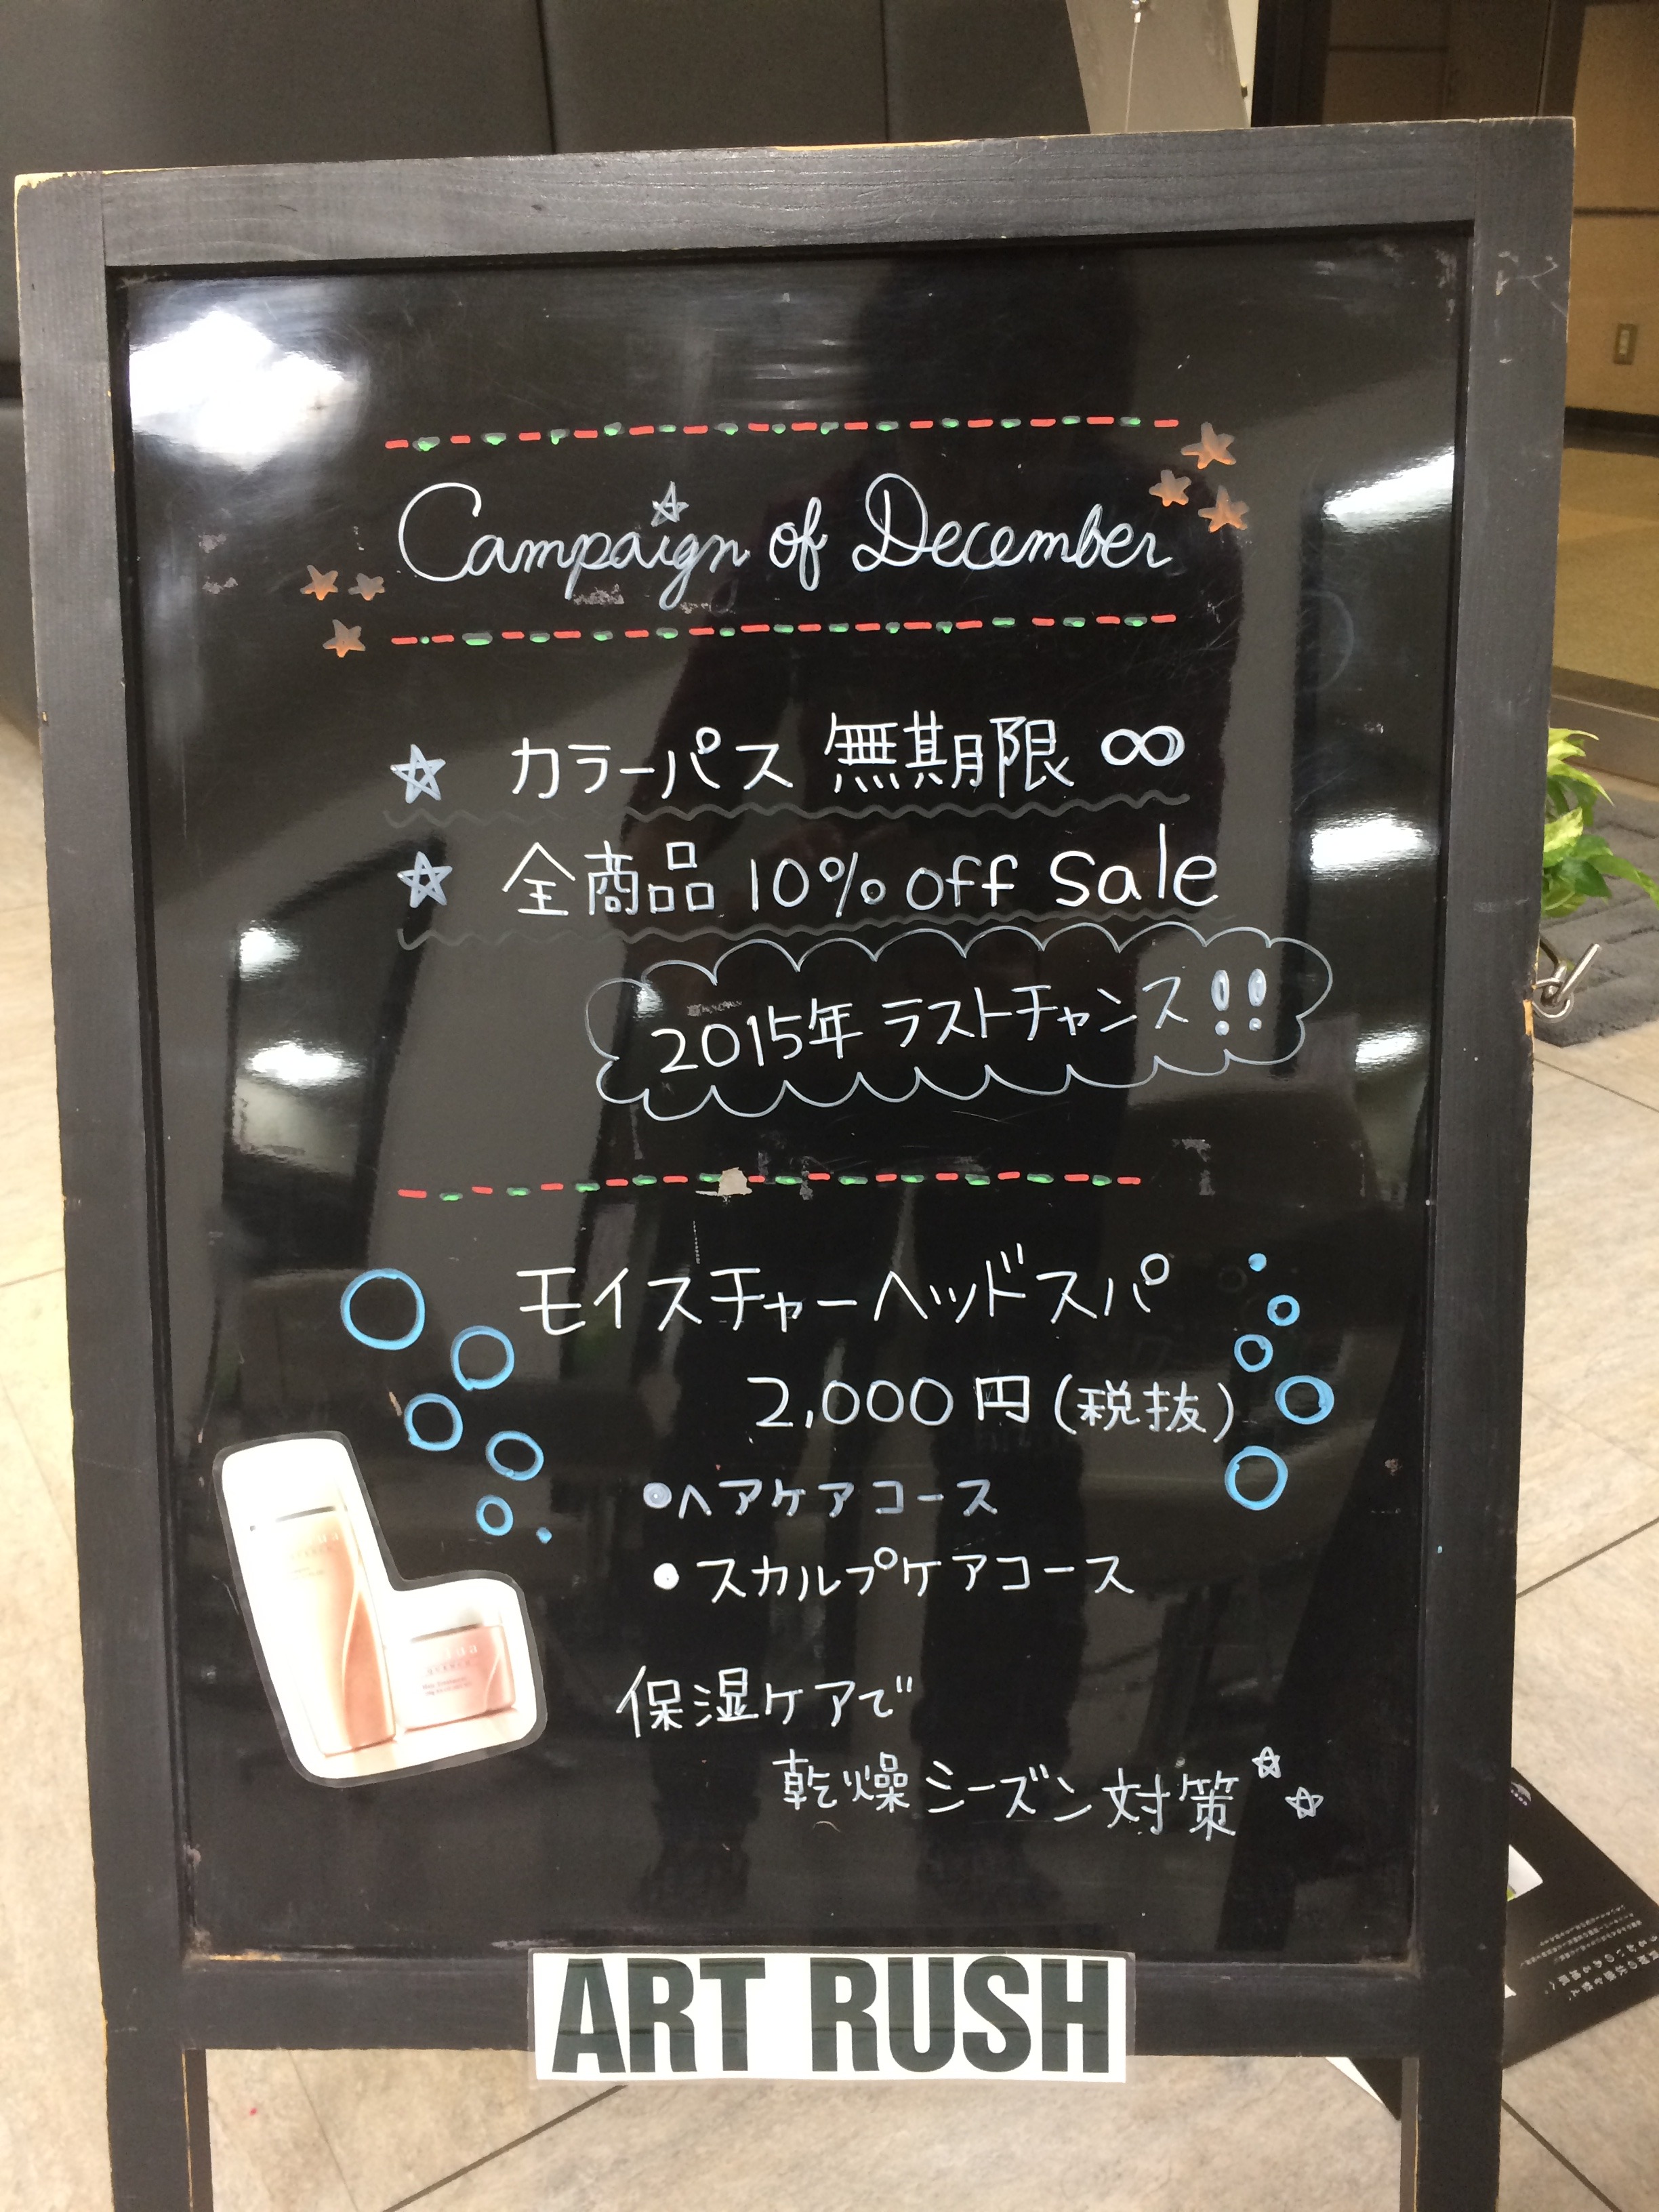 Campaign of December
カラーパス 無期限 ∞
全商品 10% off sale
2015年 ラストチャンス!!
モイスチャーヘッドスパ
2,000円(税抜)
•ヘアケアコース
•スカルプケアコース
保湿ケアで
乾燥シーズン対策
ART RUSH